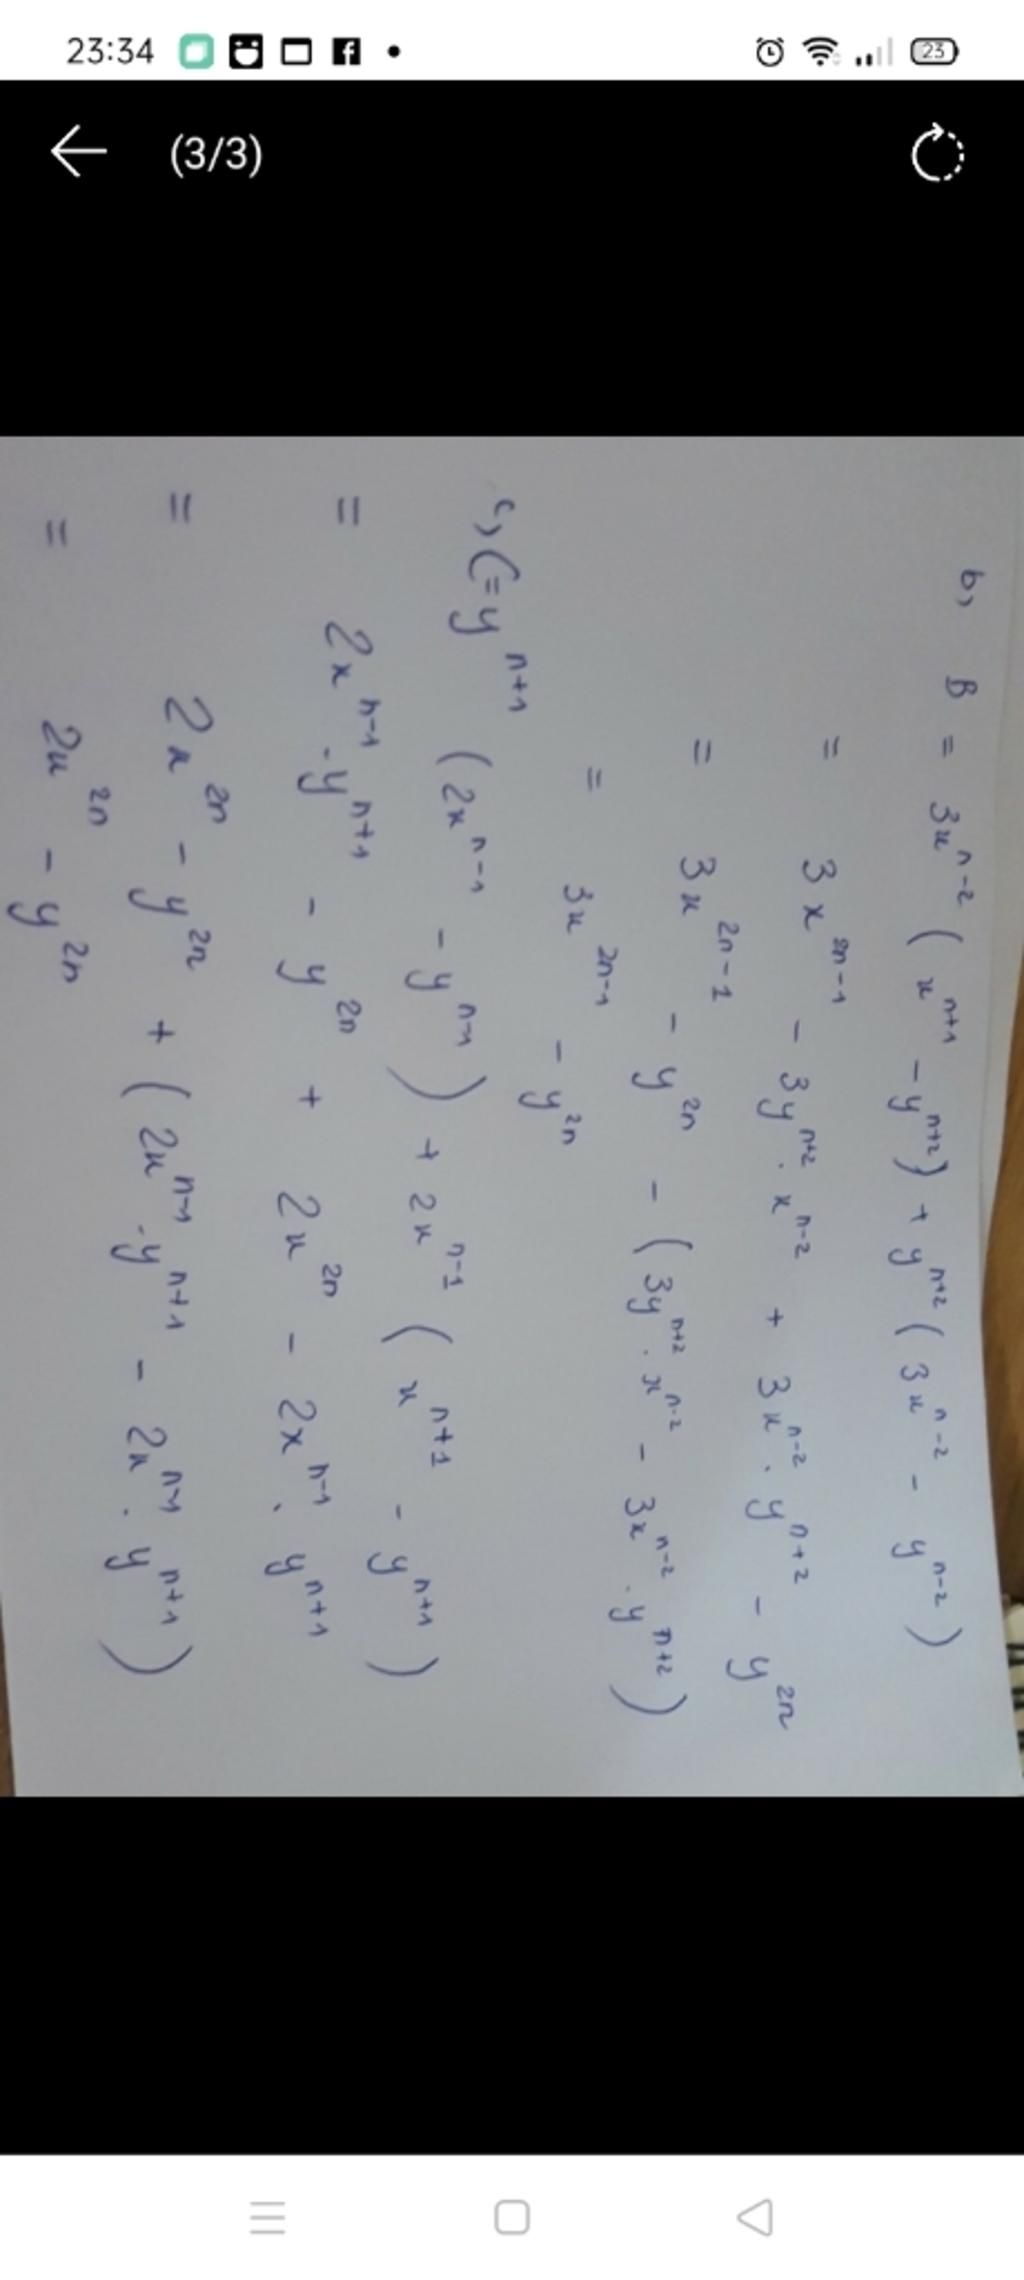 23:34
23
(3/3)
b, B = 3x^{n-2} (x^{n+1} - y^{n+2}) + y^{n+2} (3x^{n-2} - y^{n-2})
= 3x^{2n-1} - 3y^{n+2} . x^{n-2} + 3x^{n-2} . y^{n+2} - y^{2n}
= 3x^{2n-1} - y^{2n} - (3y^{n+2} . x^{n-2} - 3x^{n-2} . y^{n+2})
= 3x^{2n-1} - y^{2n}
c, C = y^{n+1} (2x^{n-1} - y^{n-1}) + 2x^{n-1} (x^{n+1} - y^{n+1})
= 2x^{n-1} . y^{n+1} - y^{2n} + 2x^{2n} - 2x^{n-1} . y^{n+1}
= 2x^{2n} - y^{2n} + (2x^{n-1} . y^{n+1} - 2x^{n-1} . y^{n+1})
= 2x^{2n} - y^{2n}